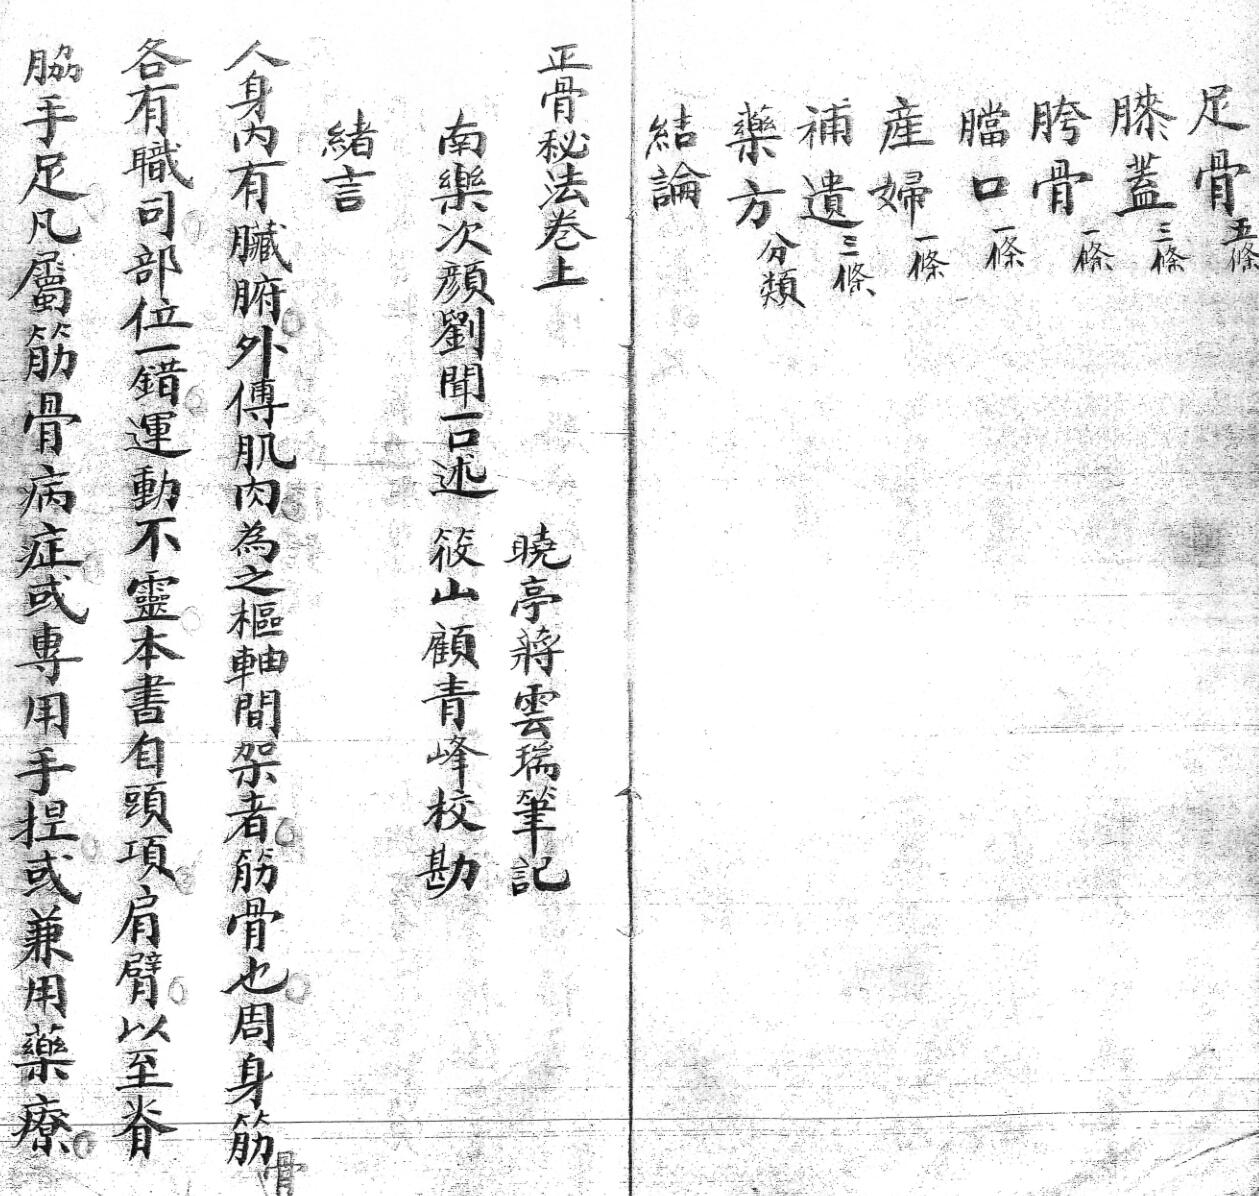 足骨五條
膝蓋三條
胯骨一條
膯口一條
産婦一條
補遺三條
藥方分類
結論
正骨秘法卷上
曉亭蔣雲瑞筆記
南樂次顏劉聞一口述 筱山顧青峰校勘
緒言
人身內有臟腑外傅肌肉為之樞軸間架者筋骨也周身筋骨
各有職司部位一錯運動不靈本書自頭項肩臂以至脊
脇手足凡屬筋骨病症或專用手捏或兼用藥療